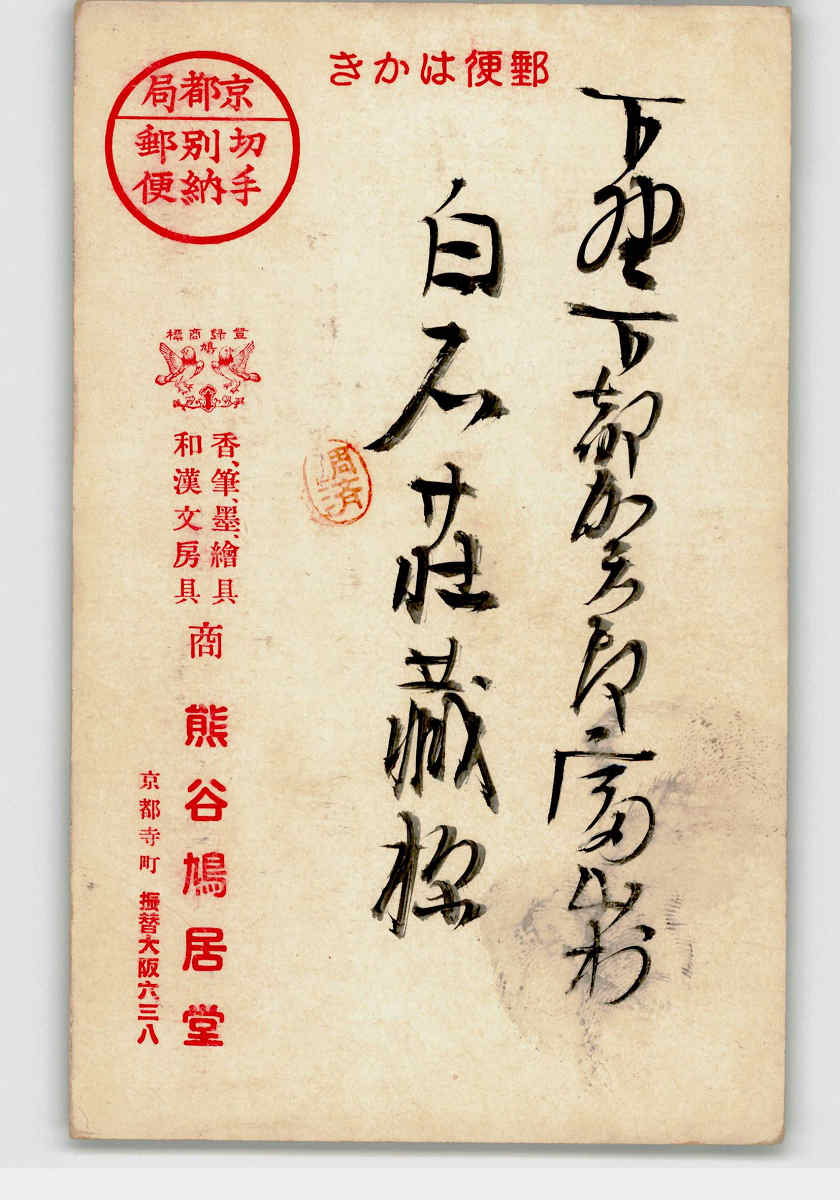 郵便はかき
下野下都賀郡富山村
白石荘藏様
京都局
切手
別納
郵便
登録商標
鳩
調済
香、筆、墨、繪具
和漢文房具
商
熊谷鳩居堂
京都寺町 振替大阪六三八